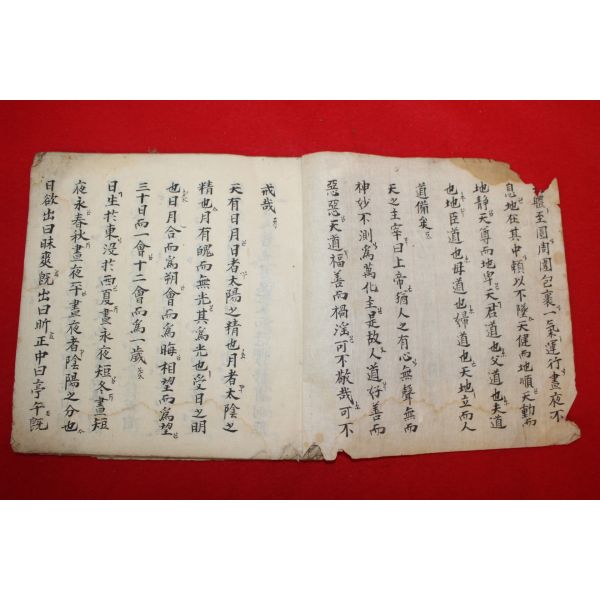 體至圓周圍包裏一氣運行晝夜不
息地在其中賴以不墜天健而地順天動而
地靜天尊而地卑天君道也父道也夫道
也地臣道也母道也婦道也天地立而人
道備矣
天之主宰曰上帝猶人之有心無聲無而
神妙不測爲萬化主是故人道好善而
惡惡天道福善而禍淫可不敬哉可不
戒哉
天有日月日者太陽之精也月者太陰之
精也月有魄而無光其爲光也受日之明
也日月合而爲朔會而爲晦相望而爲望
三十日而一會十二會而爲一歲
日生於東沒於西夏晝永夜短冬晝短
夜永春秋晝夜平晝夜者陰陽之分也
日欲出曰昧爽旣出曰昕正中曰亭午旣